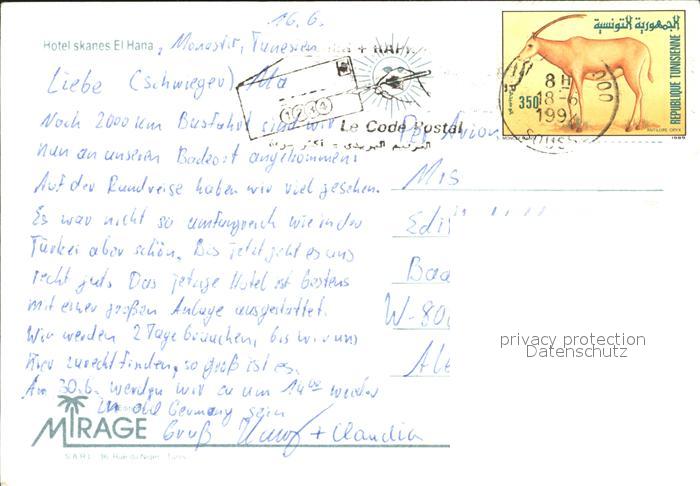 16.6.
Hotel skanes El Hana, Monastir, Tunesien
Liebe (Schwieger) Ma
Nach 2000 km Busfahrt sind wir
nun an unserem Badeort angekommen.
Auf der Rundreise haben wir viel gesehen.
Es war nicht so umfangreich wie in der
Türkei aber schön. Bis jetzt geht es uns
recht gut. Das jetzige Hotel ist bestens
mit einer großen Anlage ausgestattet.
Wir werden 2 Tage brauchen, bis wir uns
hier zurechtfinden, so groß ist es.
Am 30.6. werden wir so um 14⁰⁰ wieder
in old Germany sein
Gruß + Claudia
MIRAGE
Le Code Postal
الترقيم البريدي
الجمهورية التونسية
REPUBLIQUE TUNISIENNE
350
ANTILOPE ORYX
1989
8H
18-6
199
SOUSSE
Par Avion
Mrs
Edi
Baa
W-80
Ale
privacy protection
Datenschutz